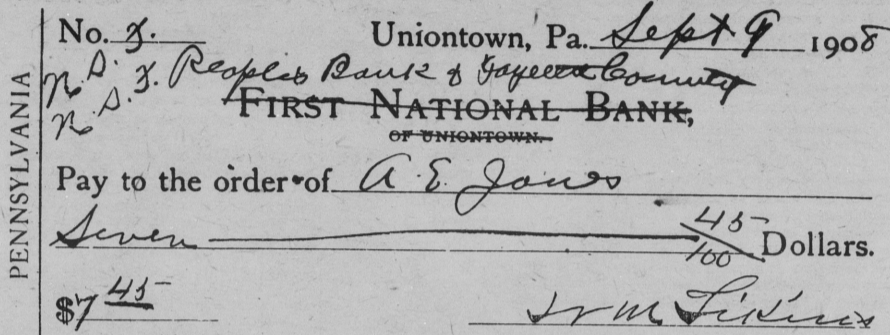 PENNSYLVANIA
No. X. Uniontown, Pa. Sept 9 1908
N. S. X. Peoples Bank of Fayette County
N. S. X. FIRST NATIONAL BANK,
OF UNIONTOWN.
Pay to the order of A. E. Jones
Seven 45/100 Dollars.
$7 45
Wm